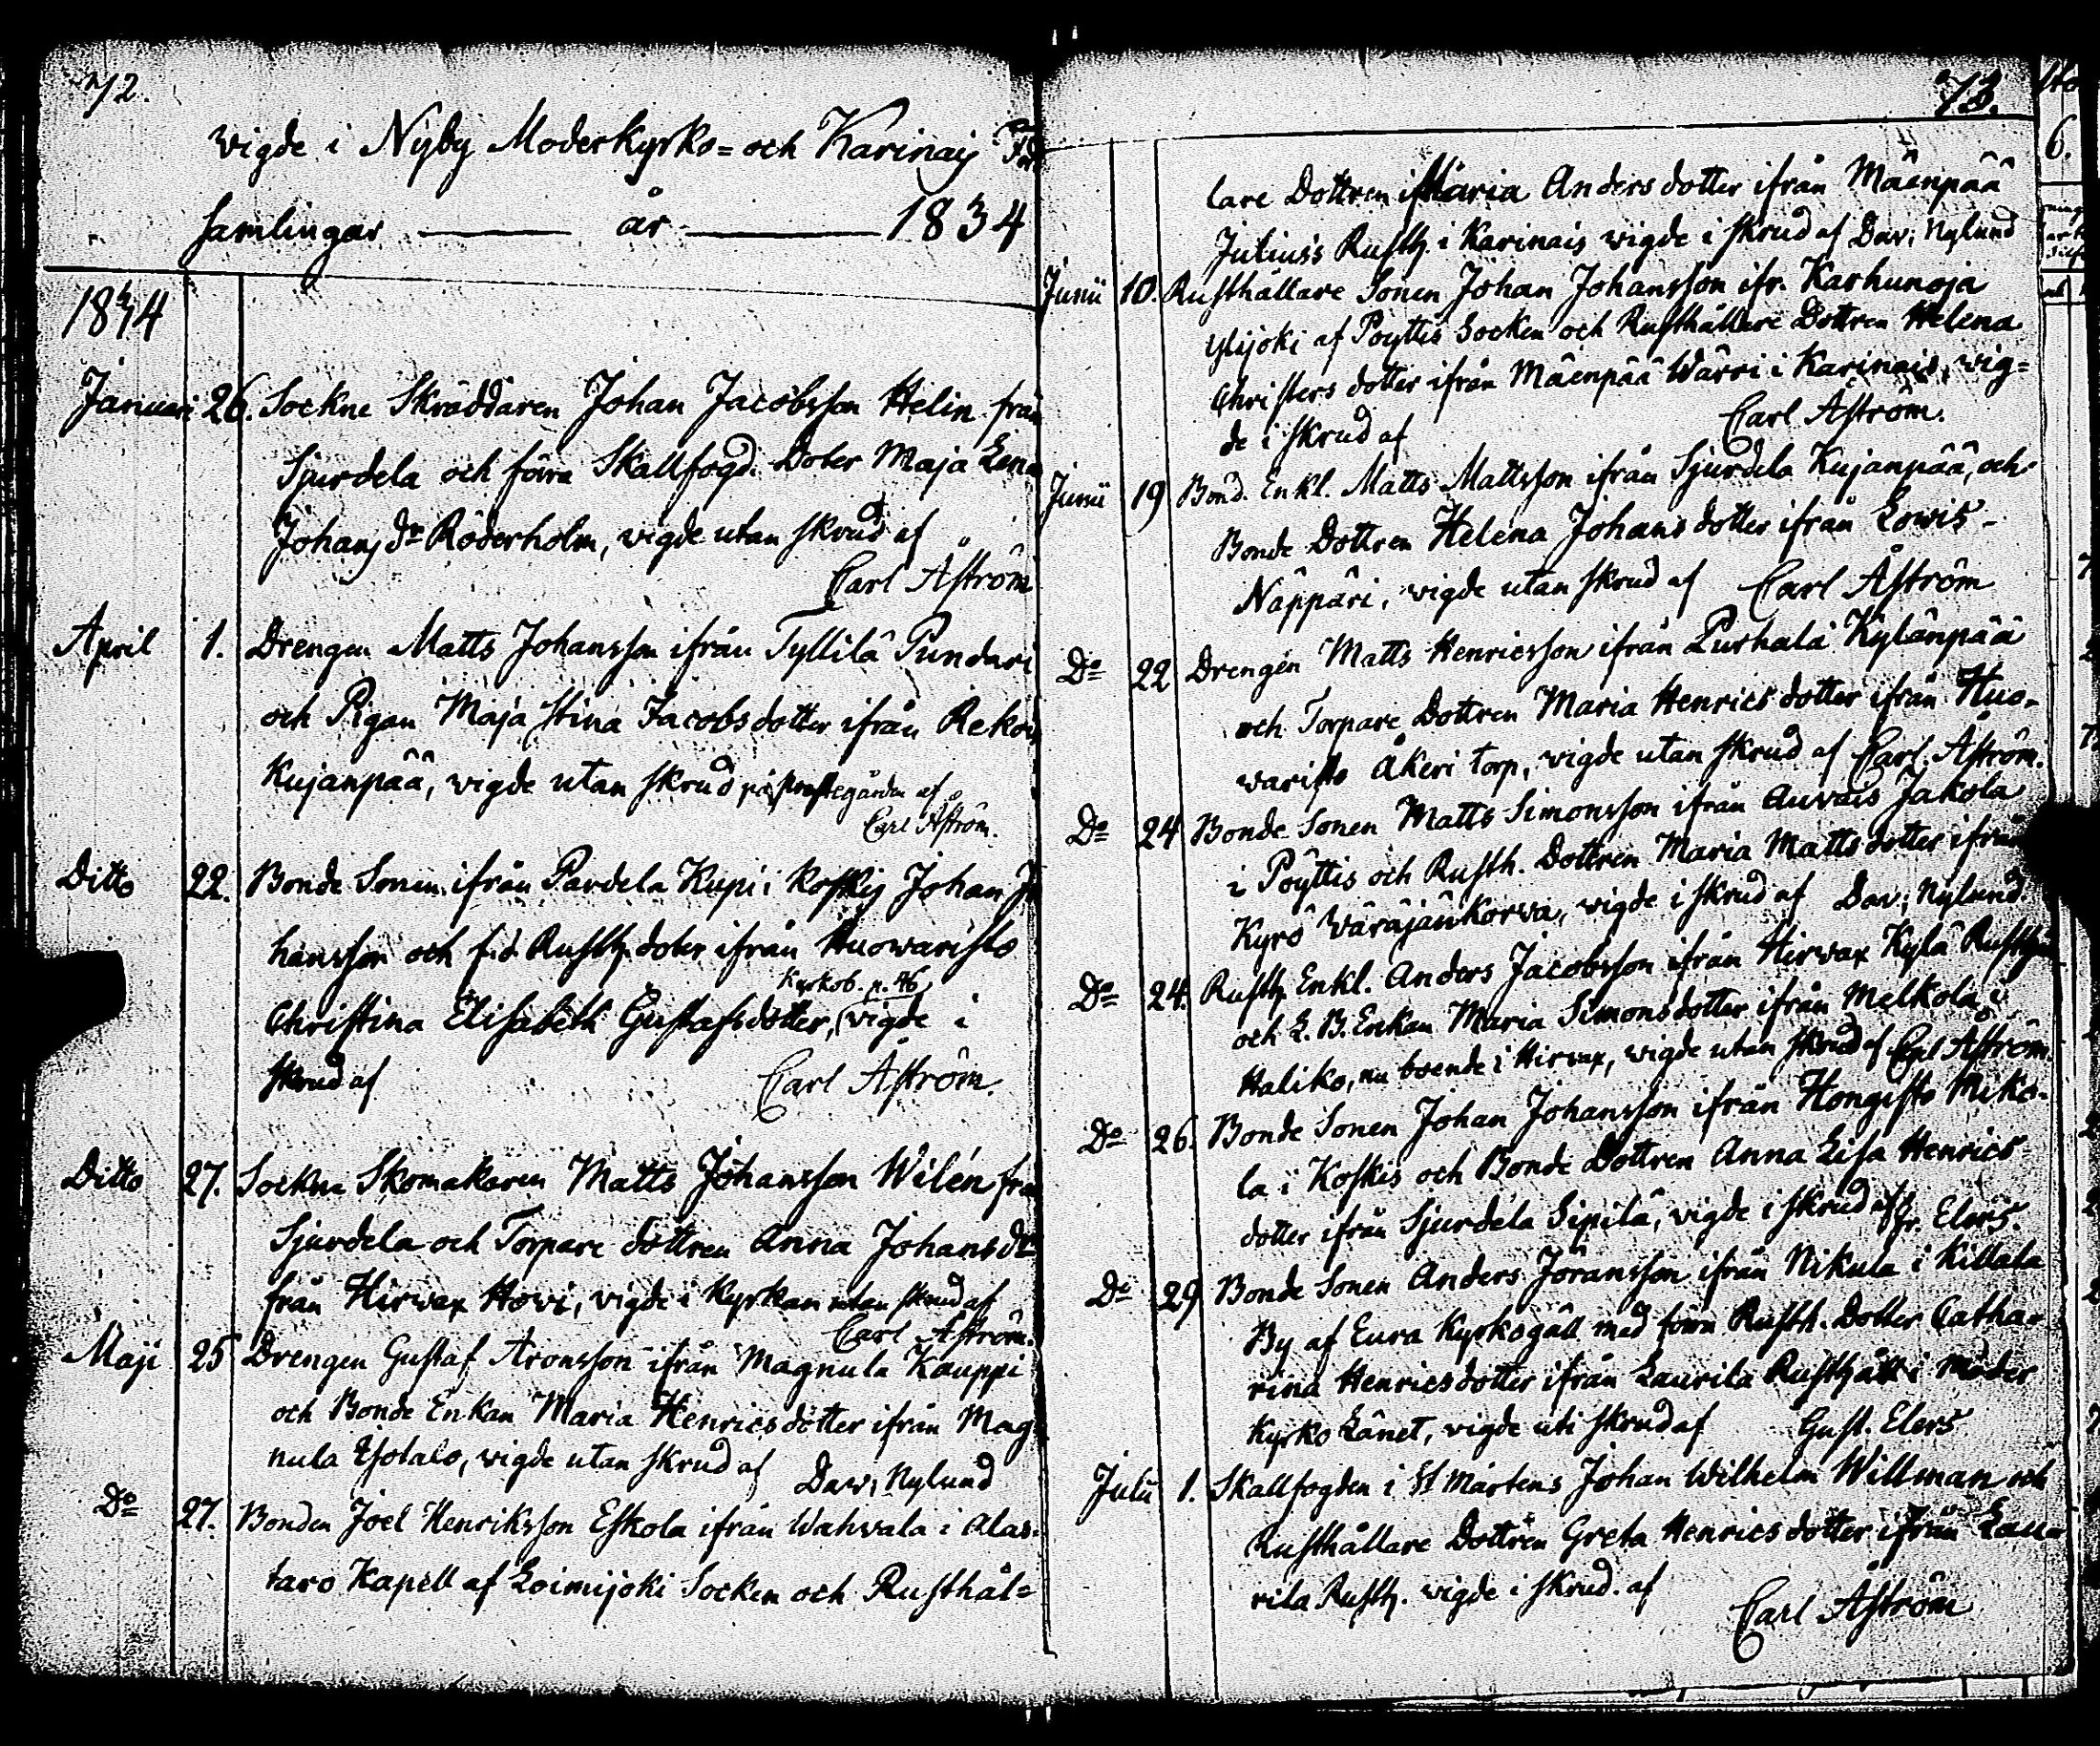 72.
vigde i Nyby Moderkyrko= och Karinais För
samlingar — år — 1834
1834
Januari 26. Sockne Skräddaren Johan Jacobsson Helin från
Sjurdela och förra Skallfogd. Doter Maja Lena
Johans dr Röderholm, vigde utan skrud af
Carl Åström
April 1. Drengen Matts Johansson ifrån Tyllilä Pundari
och Pigan Maja Stina Jacobsdotter ifrån Rekois
Kujanpää, vigde utan skrud på prestegården af
Carl Åström.
Ditto 22. Bonde Sonen ifrån Pardela Kupi i Koskis Johan Jo
hansson och f.d. Rusth. doter ifrån Huowaristo
Kyrkob. p. 46
Christina Elisabeth Gustafsdotter, vigde i
skrud af Carl Åström.
Ditto 27. Sockne Skomakaren Matts Johansson Wilén från
Sjurdela och Torpare dottren Anna Johansdr
från Hirwax Howi, vigde i Kyrkan utan skrud af
Carl Åström.
Maji 25 Drengen Gustaf Aronsson ifrån Magnula Kauppi
och Bonde Enkan Maria Henricsdotter ifrån Mag
nula Isotalo, vigde utan skrud af Dav; Nylund
Do 27. Bonden Joel Henriksson Eskola ifrån Wahvala i Alas-
taro Kapell af Loimijoki Socken och Rusthål=
73.
lare Dottren Maria Andersdotter ifrån Mäenpää
Jutius's Rusth. i Karinais vigde i skrud af Dav; Nylund
Junii 10. Rusthållare Sonen Johan Johansson ifr. Karhunoja
Ylijoki af Pöyttis Socken och Rusthållare Dottren Helena
Christers dotter ifrån Mäenpää Wärri i Karinais, vig=
de i skrud af Carl Åström.
Junii 19 Bond. Enkl. Matts Mattsson ifrån Sjurdela Kujanpää, och
Bonde Dottren Helena Johans dotter ifrån Lowis-
Näppäri, vigde utan skrud af Carl Åström
Do 22 Drengen Matts Henricsson ifrån Purhala Kylänpää
och Torpare Dottren Maria Henrics dotter ifrån Huo-
waristo Åkeri torp, vigde utan skrud af Carl Åström.
Do 24 Bonde Sonen Matts Simonsson ifrån Auvais Jakola
i Pöyttis och Rusth. Dottren Maria Matts dotter ifrån
Kyrö Wäräjänkorva, vigde i skrud af Dav; Nylund.
Do 24. Rusth. Enkl. Anders Jacobsson ifrån Hirwax Kylä Rusth
och L. B. Enkan Maria Simonsdotter ifrån Melkola i
Haliko, nu boende i Hirvax, vigde utan skrud af Carl Åström
Do 26. Bonde Sonen Johan Johansson ifrån Hongisto Miko-
la i Koskis och Bonde Dottren Anna Lisa Henrics
dotter ifrån Sjurdela Sipilä, vigde i skrud af Gr. Elers.
Do 29 Bonde Sonen Anders Jöransson ifrån Nikula i Killala
By af Eura Kyrkogäll med förra Rusth. Dotter Catha-
rina Henricsdotter ifrån Laurila Rusthåll i Moder
Kyrko Länet, vigde uti skrud af Gust. Elers
Julii 1. Skallfogden i St Mårtens Johan Wilhelm Willman och
Rusthållare Dottren Greta Henrics dotter ifrån Lau-
rila Rusth. vigde i skrud. af
Carl Åström
6.